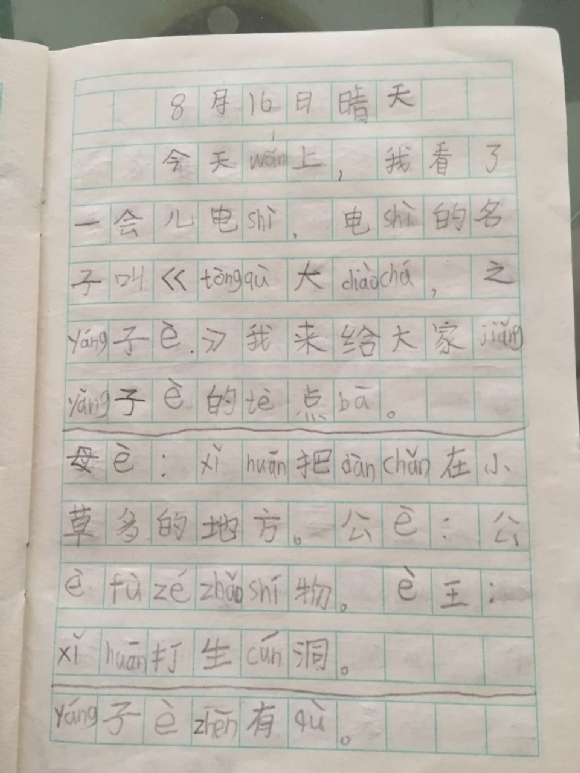 8月16日晴天
今天wǎn上，我看了
一会儿电shì，电shì的名
子叫《tòngqù大diàochá，之
yáng子è.》我来给大家jiǎng
yáng子è的tè点bā。
母è：xǐhuān把dànchǎn在小
草多的地方。公è：公
èfùzézhǎoshí物。è王：
xǐhuān打生cún洞。
yáng子èzhēn有qù。